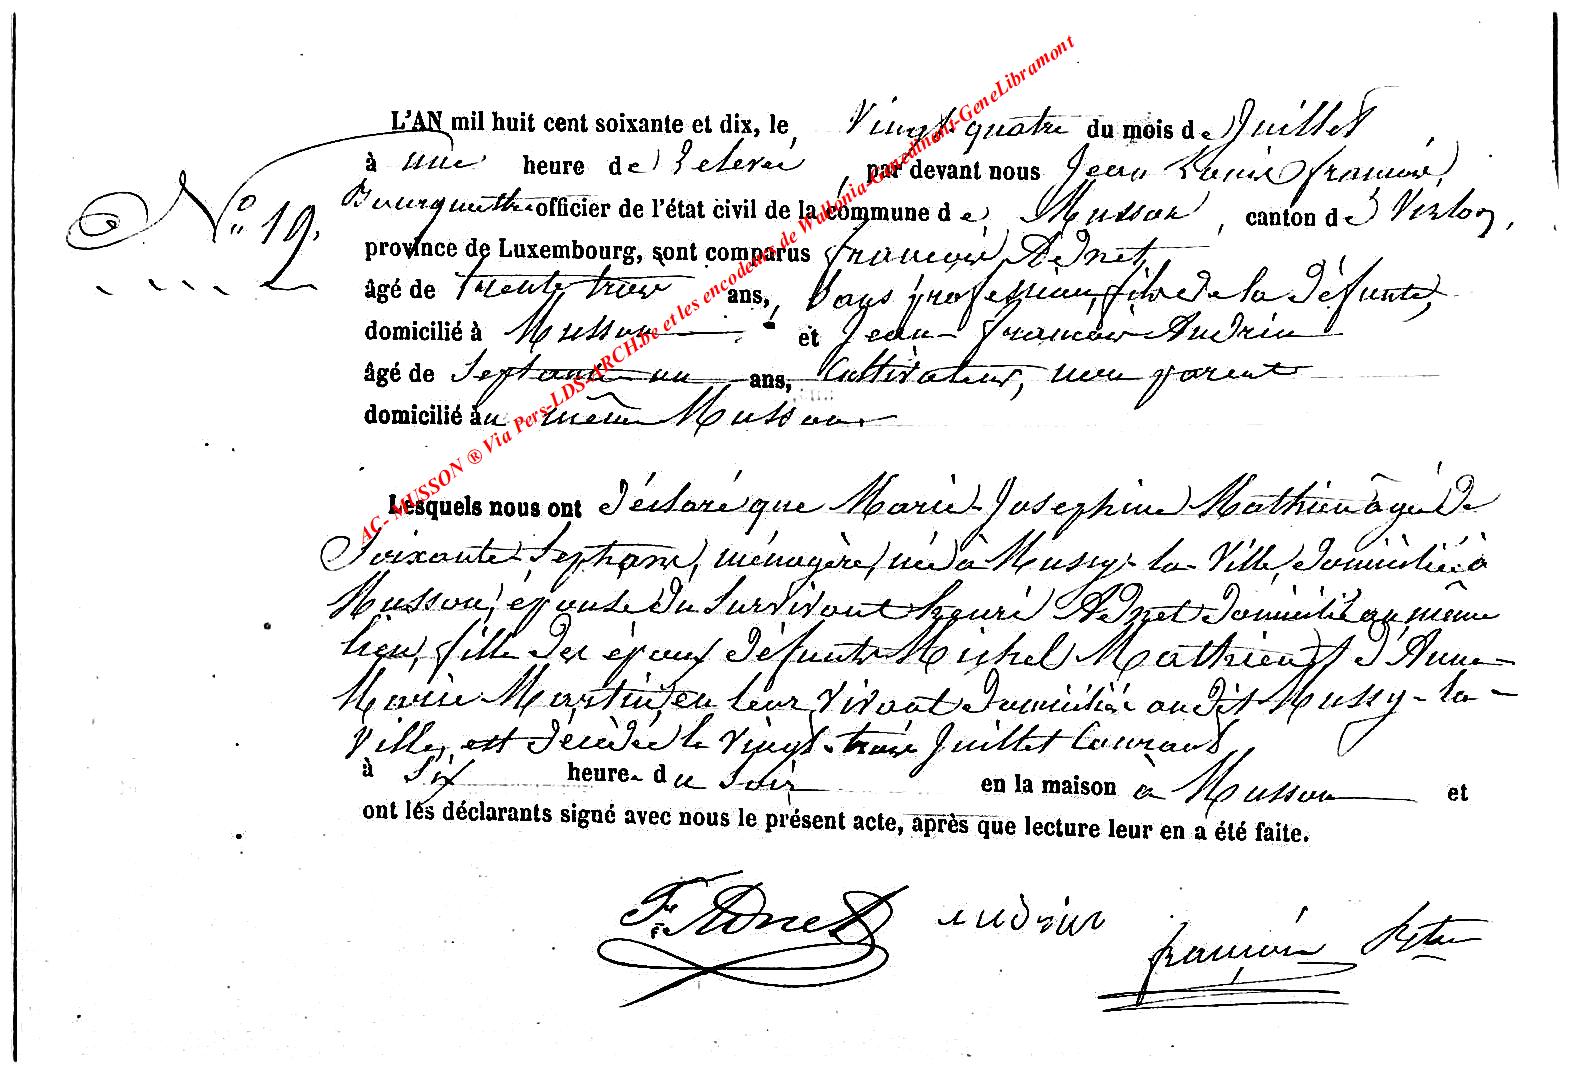 L'AN mil huit cent soixante et dix, le Vingt quatre du mois de Juillet
à une heure de relevée, par devant nous Jean Louis françois
N° 19. Bourguette officier de l'état civil de la commune de Musson, canton de Virton,
province de Luxembourg, sont comparus françois Adnet
âgé de trente trois ans, sans profession, fils de la défunte,
domicilié à Musson et Jean françois Andrin
âgé de Septante un ans, Cultivateur, non parent
domicilié au même Musson
Lesquels nous ont déclaré que Marie Josephine Mathieu âgée de
Soixante Sept ans, ménagère, née à Mussy-la-Ville, domiciliée à
Musson, épouse du Survivant henri Adnet domicilié au même
lieu, fille des époux défunts Michel Mathieu et d'Anne
Marie Martin, en leur vivant domiciliés au dit Mussy-la-
Ville, est décédée le vingt-trois Juillet Courant
à six heure du soir en la maison à Musson et
ont les déclarants signé avec nous le présent acte, après que lecture leur en a été faite.
F. Adnet andrin françois
AC- MUSSON ® Via Pers-LDS-ARCH.be et les encodeurs de Wallonia-Genedinant-GeneLibramont